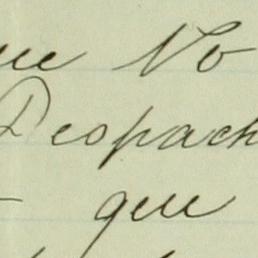 ue No
Despach
que